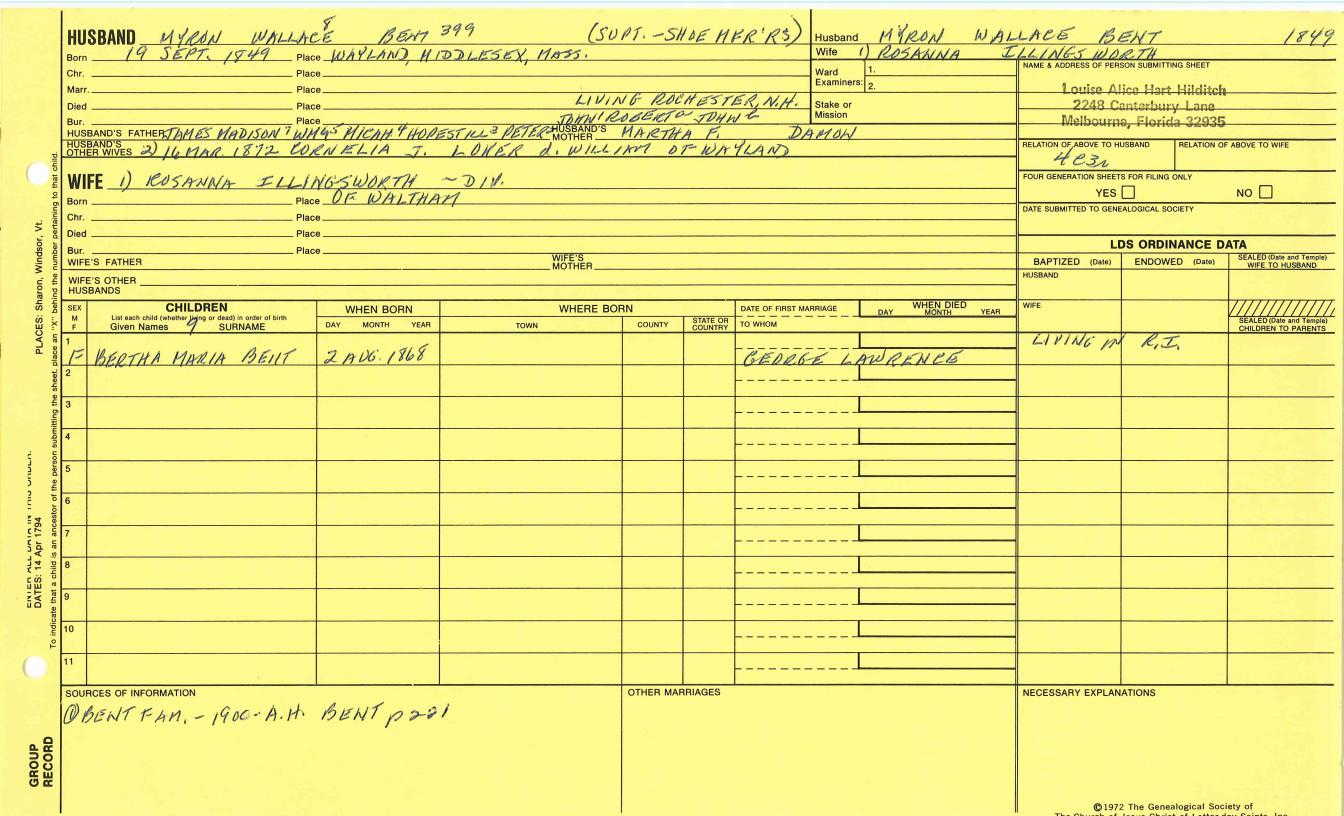 HUSBAND MYRON WALLACE 8 BENT 399 (SUPT. -SHOE MFR'RS)
Born 19 SEPT. 1849 Place WAYLAND, MIDDLESEX, MASS.
Chr. Place
Marr. Place
Died Place LIVING ROCHESTER, N.H.
Bur. Place JOHN' ROBERT JOHN
HUSBAND'S FATHER JAMES MADISON 7 WM 6 MICAH 4 HOPESTILL 3 PETER HUSBAND'S MOTHER MARTHA F. DAMON
HUSBAND'S OTHER WIVES 2) 16 MAR. 1872 CORNELIA J. LOKER d. WILLIAM OF WAYLAND
WIFE 1) ROSANNA ILLINGSWORTH ~ DIV.
Born Place OF WALTHAM
Chr. Place
Died Place
Bur. Place
WIFE'S FATHER WIFE'S MOTHER
WIFE'S OTHER HUSBANDS
Husband MYRON WALLACE BENT 1849
Wife 1) ROSANNA ILLINGSWORTH
Ward Examiners: 1. 2.
Stake or Mission
NAME & ADDRESS OF PERSON SUBMITTING SHEET
Louise Alice Hart Hilditch
2248 Canterbury Lane
Melbourne, Florida 32935
RELATION OF ABOVE TO HUSBAND RELATION OF ABOVE TO WIFE
4c3r
FOUR GENERATION SHEETS FOR FILING ONLY
YES NO
DATE SUBMITTED TO GENEALOGICAL SOCIETY
LDS ORDINANCE DATA
BAPTIZED (Date) ENDOWED (Date) SEALED (Date and Temple) WIFE TO HUSBAND
HUSBAND
WIFE
SEALED (Date and Temple) CHILDREN TO PARENTS
SEX M F CHILDREN WHEN BORN WHERE BORN DATE OF FIRST MARRIAGE WHEN DIED
List each child (whether living or dead) in order of birth
Given Names 9 SURNAME DAY MONTH YEAR TOWN COUNTY STATE OR COUNTRY TO WHOM DAY MONTH YEAR
1 F BERTHA MARIA BENT 2 AUG. 1868 GEORGE LAWRENCE LIVING IN R.I.
2
3
4
5
6
7
8
9
10
11
SOURCES OF INFORMATION OTHER MARRIAGES NECESSARY EXPLANATIONS
① BENT FAM. - 1900 - A.H. BENT p 221
©1972 The Genealogical Society of
The Church of Jesus Christ of Latter-day Saints, Inc.
PLACES: Sharon, Windsor, Vt.
ENTER ALL DATA IN THIS ORDER:
DATES: 14 Apr 1794
To indicate that a child is an ancestor of the person submitting the sheet, place an "X" behind the number pertaining to that child.
GROUP RECORD